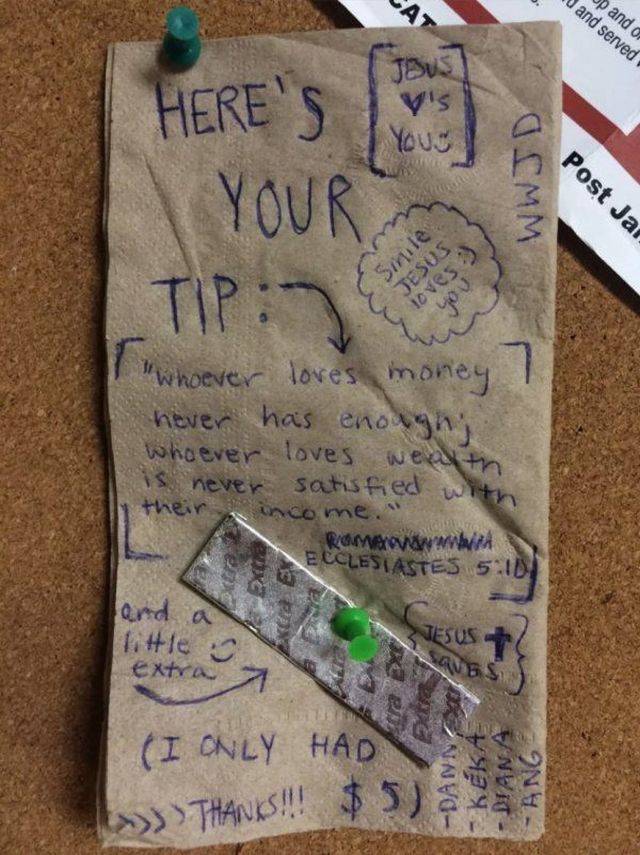 HERE'S
YOUR
TIP:
JESUS
♥'s
YOU
WWJD
Smile
JESUS
loves :)
you
"whoever loves money
never has enough;
whoever loves wealth
is never satisfied with
their income."
ECCLESIASTES 5:10
and a
little
extra
Extra Extra Extra
JESUS
SAVES
(I ONLY HAD
$5)
>>>> THANKS!!!
-DANNY
-KĒKA
-DIANA
-ANG
CAT
and served
Post